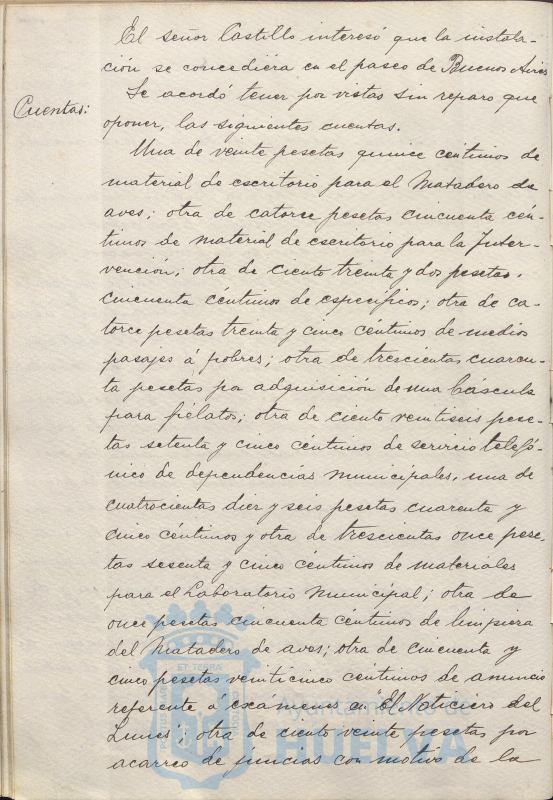 El señor Castillo interesó que la instala-
ción se concediera en el paseo de Buenos Aires
Cuentas:
Se acordó tener por vistas sin reparo que
oponer, las siguientes cuentas.
Una de veinte pesetas quince céntimos de
material de escritorio para el Matadero de
aves; otra de catorce pesetas cincuenta cén-
timos de material de escritorio para la Inter-
vención; otra de ciento treinta y dos pesetas,
cincuenta céntimos de específicos; otra de ca-
torce pesetas treinta y cinco céntimos de medios
pasajes á pobres; otra de trescientas cuaren-
ta pesetas por adquisición de una báscula
para fielatos; otra de ciento veintiseis pese-
tas setenta y cinco céntimos de servicio telefó-
nico de dependencias municipales, una de
cuatrocientas diez y seis pesetas cuarenta y
cinco céntimos y otra de trescientas once pese-
tas sesenta y cinco céntimos de materiales
para el Laboratorio Municipal; otra de
once pesetas cincuenta céntimos de limpiera
del Matadero de aves; otra de cincuenta y
cinco pesetas veinticinco céntimos de anuncio
referente á exámenes en "El Noticiero del
Lunes"; otra de ciento veinte pesetas por
acarreo de juncias con motivo de la
ET TERRA
Ayuntamiento de
HUELVA